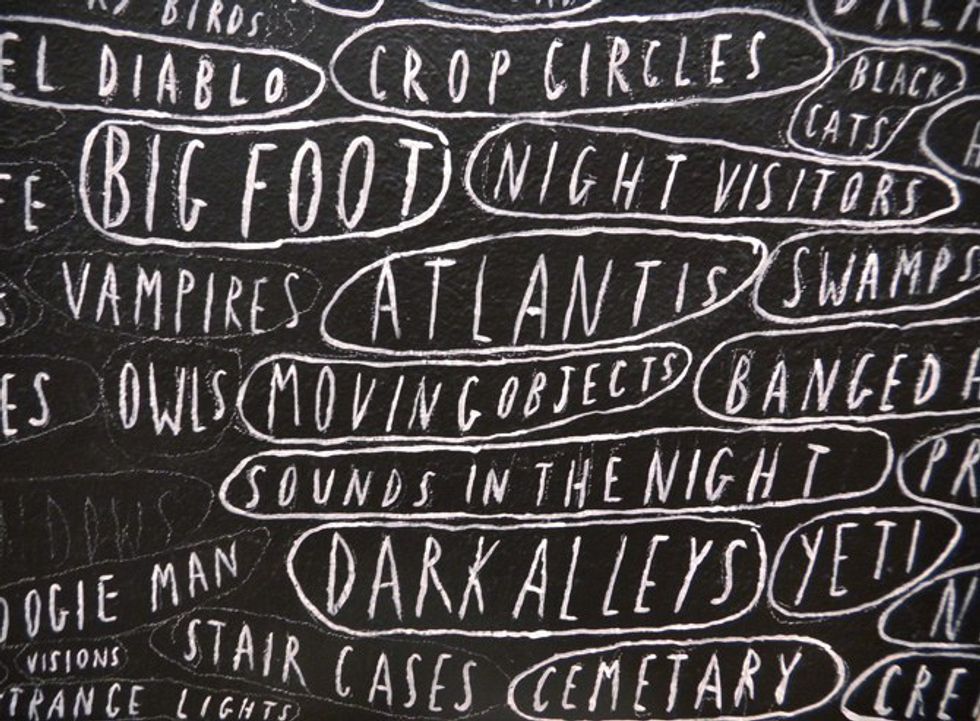 BIRDS
EL DIABLO
CROP CIRCLES
BLACK
CATS
BIG FOOT
NIGHT VISITORS
VAMPIRES
ATLANTIS
SWAMPS
OWLS
MOVING OBJECTS
BANGED
SOUNDS IN THE NIGHT
DARK ALLEYS
YETI
OOGIE MAN
VISIONS
STAIR CASES
CEMETARY
CRE
TRANGE LIGHTS